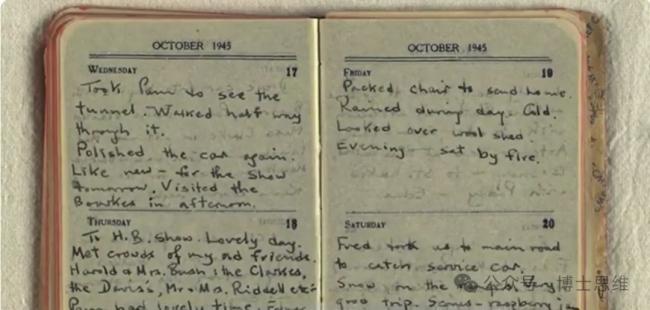 OCTOBER 1945
WEDNESDAY 17
Took Pam to see the
tunnel. Walked half way
through it.
Polished the car again.
Like new - for the Show
tomorrow. Visited the
Bowkes in afternoon.
THURSDAY 18
To H.B. Show. Lovely day.
Met crowds of my old friends.
Harold & Mrs. Bush: the Clarkes,
the Davis's, Mr. & Mrs. Riddell etc
Pam had lovely time.
OCTOBER 1945
FRIDAY 19
Packed chair to send home.
Rained during day. Cold.
Looked over wool shed.
Evening - sat by fire.
SATURDAY 20
Fred took us to main road
to catch service car.
Snow on the
good trip. Scones - raspberry
公众号·博士思维